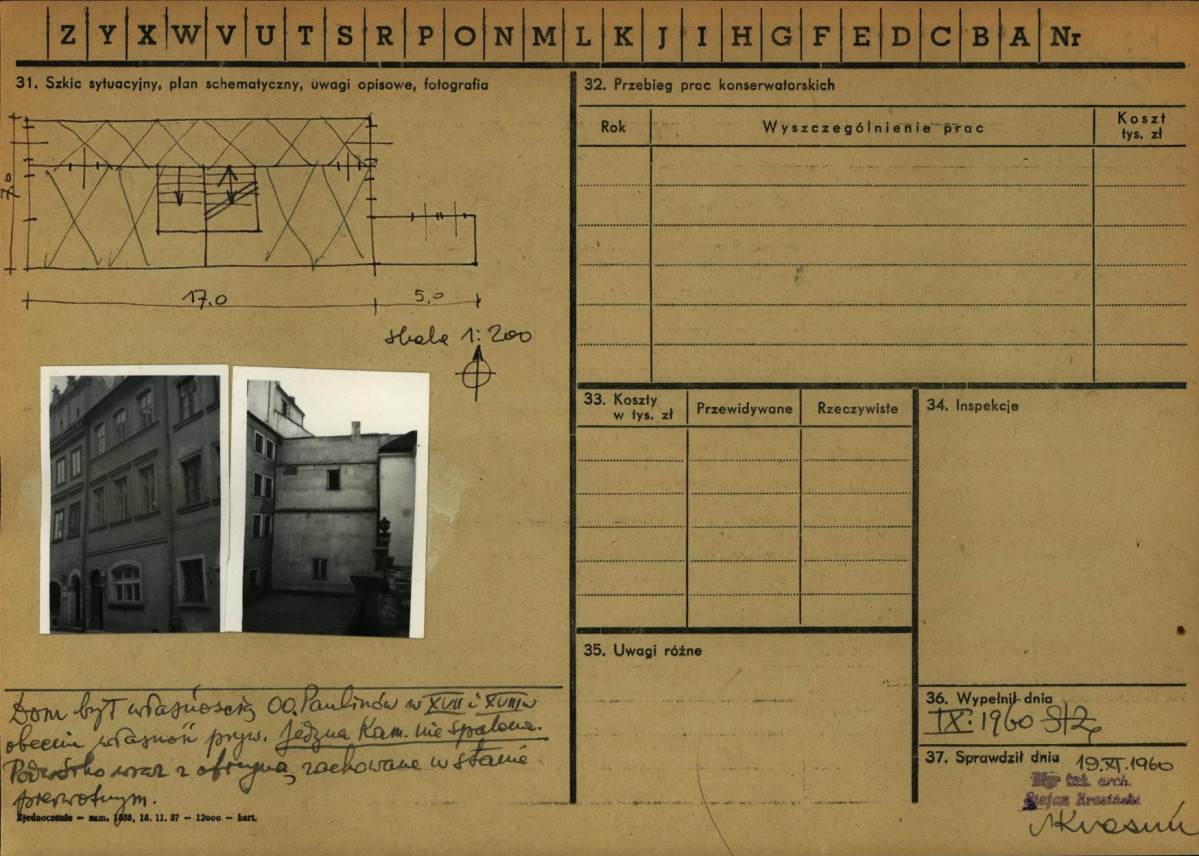 Z Y X W V U T S R P O N M L K J I H G F E D C B A Nr
31. Szkic sytuacyjny, plan schematyczny, uwagi opisowe, fotografia
7.0
17.0
5.0
skala 1:200
Dom był własnością OO. Paulinów w XVII i XVIII w
obecnie własność pryw. Jedyna Kam. nie spalona.
Podwórko wraz z oficyną zachowane w stanie
pierwotnym.
Zjednoczenie — zam. 1858, 18. 11. 57 — 12000 — kart.
32. Przebieg prac konserwatorskich
Rok
Wyszczególnienie prac
Koszt
tys. zł
33. Koszty
w tys. zł
Przewidywane
Rzeczywiste
34. Inspekcje
35. Uwagi różne
36. Wypełnił dnia
IX. 1960
37. Sprawdził dnia
19.XI.1960
Mgr inż. arch.
Stefan Krasiński